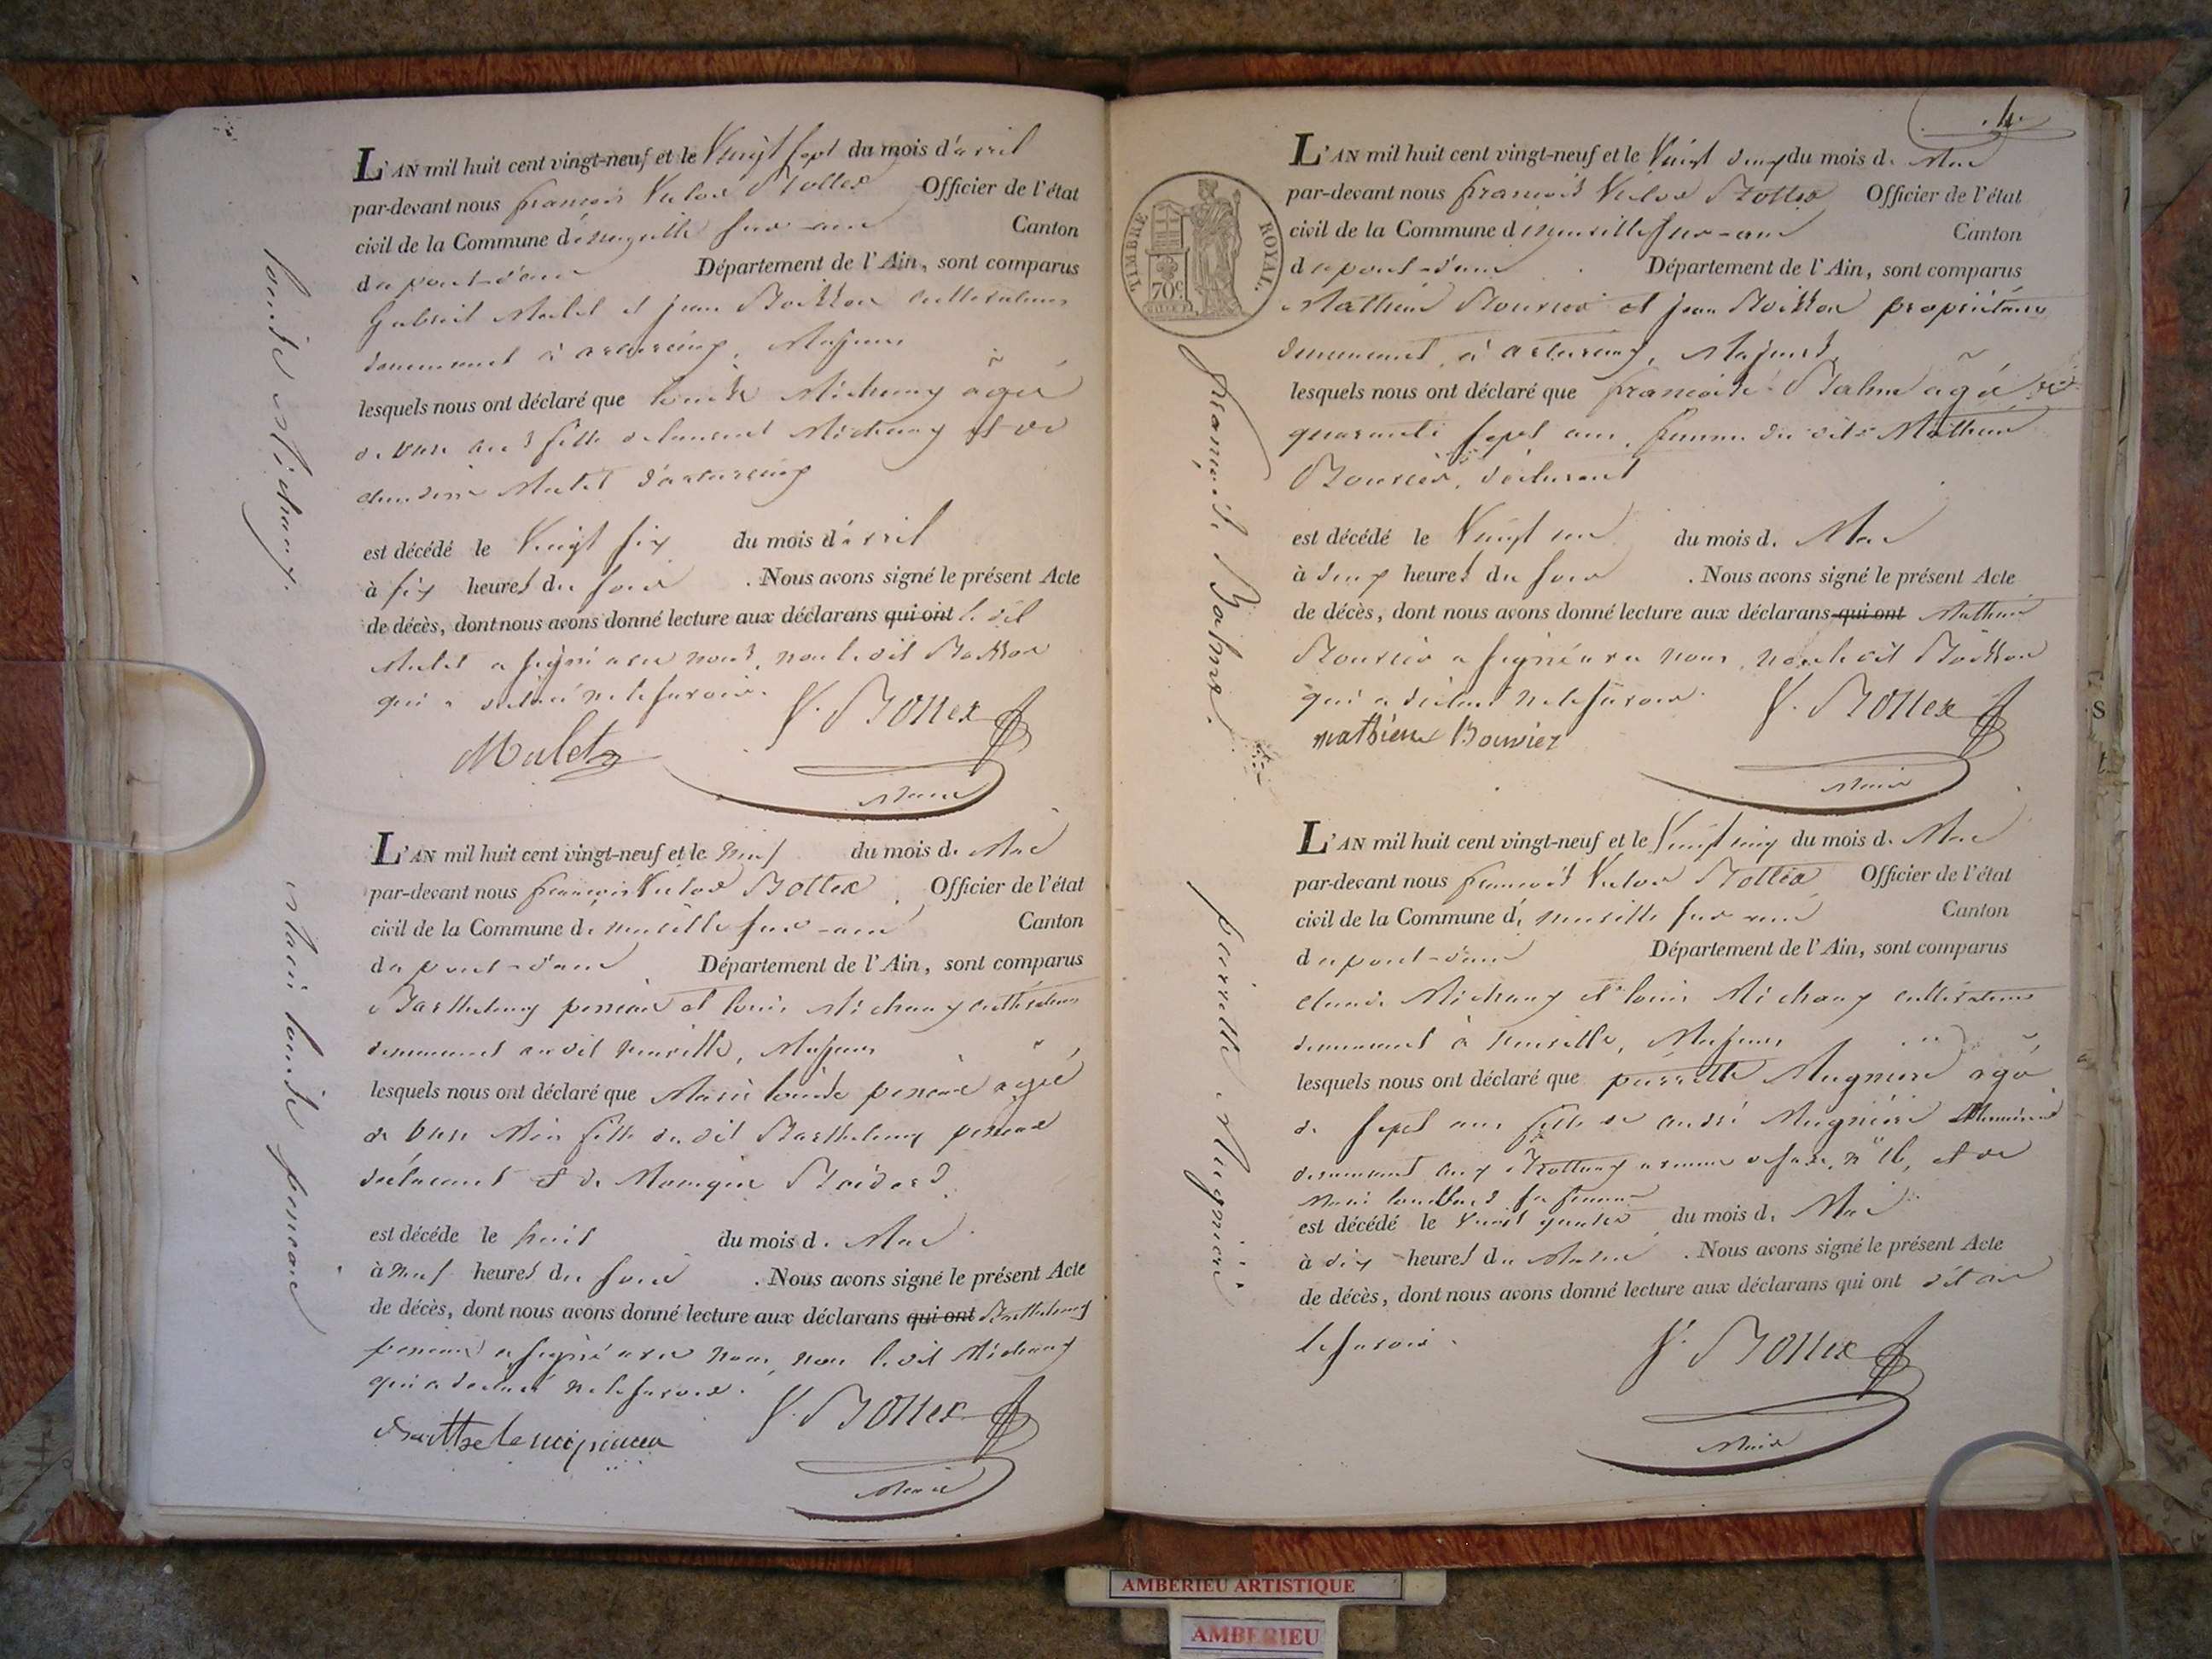 L'AN mil huit cent vingt-neuf et le Vingt sept du mois d'avril
par-devant nous françois Victor Bottex Officier de l'état
civil de la Commune de neuville sur-ain Canton
du pont-d'ain Département de l'Ain, sont comparus
Gabriel Mulet et jean Boisson cultivateurs
demeurant à , Majeurs
lesquels nous ont déclaré que Louise Michaux agée
de onze ans fille de laurent Michaux et de
Mulet
est décédé le Vingt six du mois d'avril
à six heures du soir . Nous avons signé le présent Acte
de décès, dont nous avons donné lecture aux déclarans qui ont le dit
Mulet a signé avec nous, non le dit Boisson
qui a déclaré ne le savoir. V. Bottex
Mulet
Maire
louise Michaux.
L'AN mil huit cent vingt-neuf et le neuf du mois de Mai
par-devant nous françois Victor Bottex Officier de l'état
civil de la Commune de neuville sur-ain Canton
du pont-d'ain Département de l'Ain, sont comparus
Barthelemy et louis Michaux cultivateurs
demeurant au dit neuville, Majeurs
lesquels nous ont déclaré que Marie louise agée
de onze Mois fille du dit Barthelemy
déclarant et de Monique
est décédé le huit du mois de Mai
à neuf heures du soir . Nous avons signé le présent Acte
de décès, dont nous avons donné lecture aux déclarans qui ont Barthelemy
a signé avec nous, non le dit Michaux
qui a déclaré ne le savoir. V. Bottex
Maire
Marie louise
4
TIMBRE ROYAL.
70c
L'AN mil huit cent vingt-neuf et le Vingt deux du mois de Mai
par-devant nous françois Victor Bottex Officier de l'état
civil de la Commune de neuville sur-ain Canton
du pont-d'ain Département de l'Ain, sont comparus
Mathieu Bouvier et jean Boisson propriétaires
demeurant à , Majeurs,
lesquels nous ont déclaré que françoise Balme agée de
quarante sept ans, femme du dit Mathieu
Bouvier, déclarant
est décédé le Vingt un du mois de Mai
à deux heures du soir . Nous avons signé le présent Acte
de décès, dont nous avons donné lecture aux déclarans qui ont Mathieu
Bouvier a signé avec nous, non le dit Boisson
qui a déclaré ne le savoir. V. Bottex
mathieu Bouvier
Maire
françoise Balme.
L'AN mil huit cent vingt-neuf et le Vingt cinq du mois de Mai
par-devant nous françois Victor Bottex Officier de l'état
civil de la Commune de neuville sur-ain Canton
du pont-d'ain Département de l'Ain, sont comparus
claude Michaux et louis Michaux cultivateurs
demeurant à neuville, Majeurs
lesquels nous ont déclaré que pierrette Mugnier agé
de sept ans fille de andré Mugnier
demeurant aux n° 16, et de
Marie sa femme
est décédé le Vingt quatre du mois de Mai
à dix heures du Matin . Nous avons signé le présent Acte
de décès, dont nous avons donné lecture aux déclarans qui ont dit ne
le savoir. V. Bottex
Maire
pierrette Mugnier
AMBERIEU ARTISTIQUE
AMBERIEU